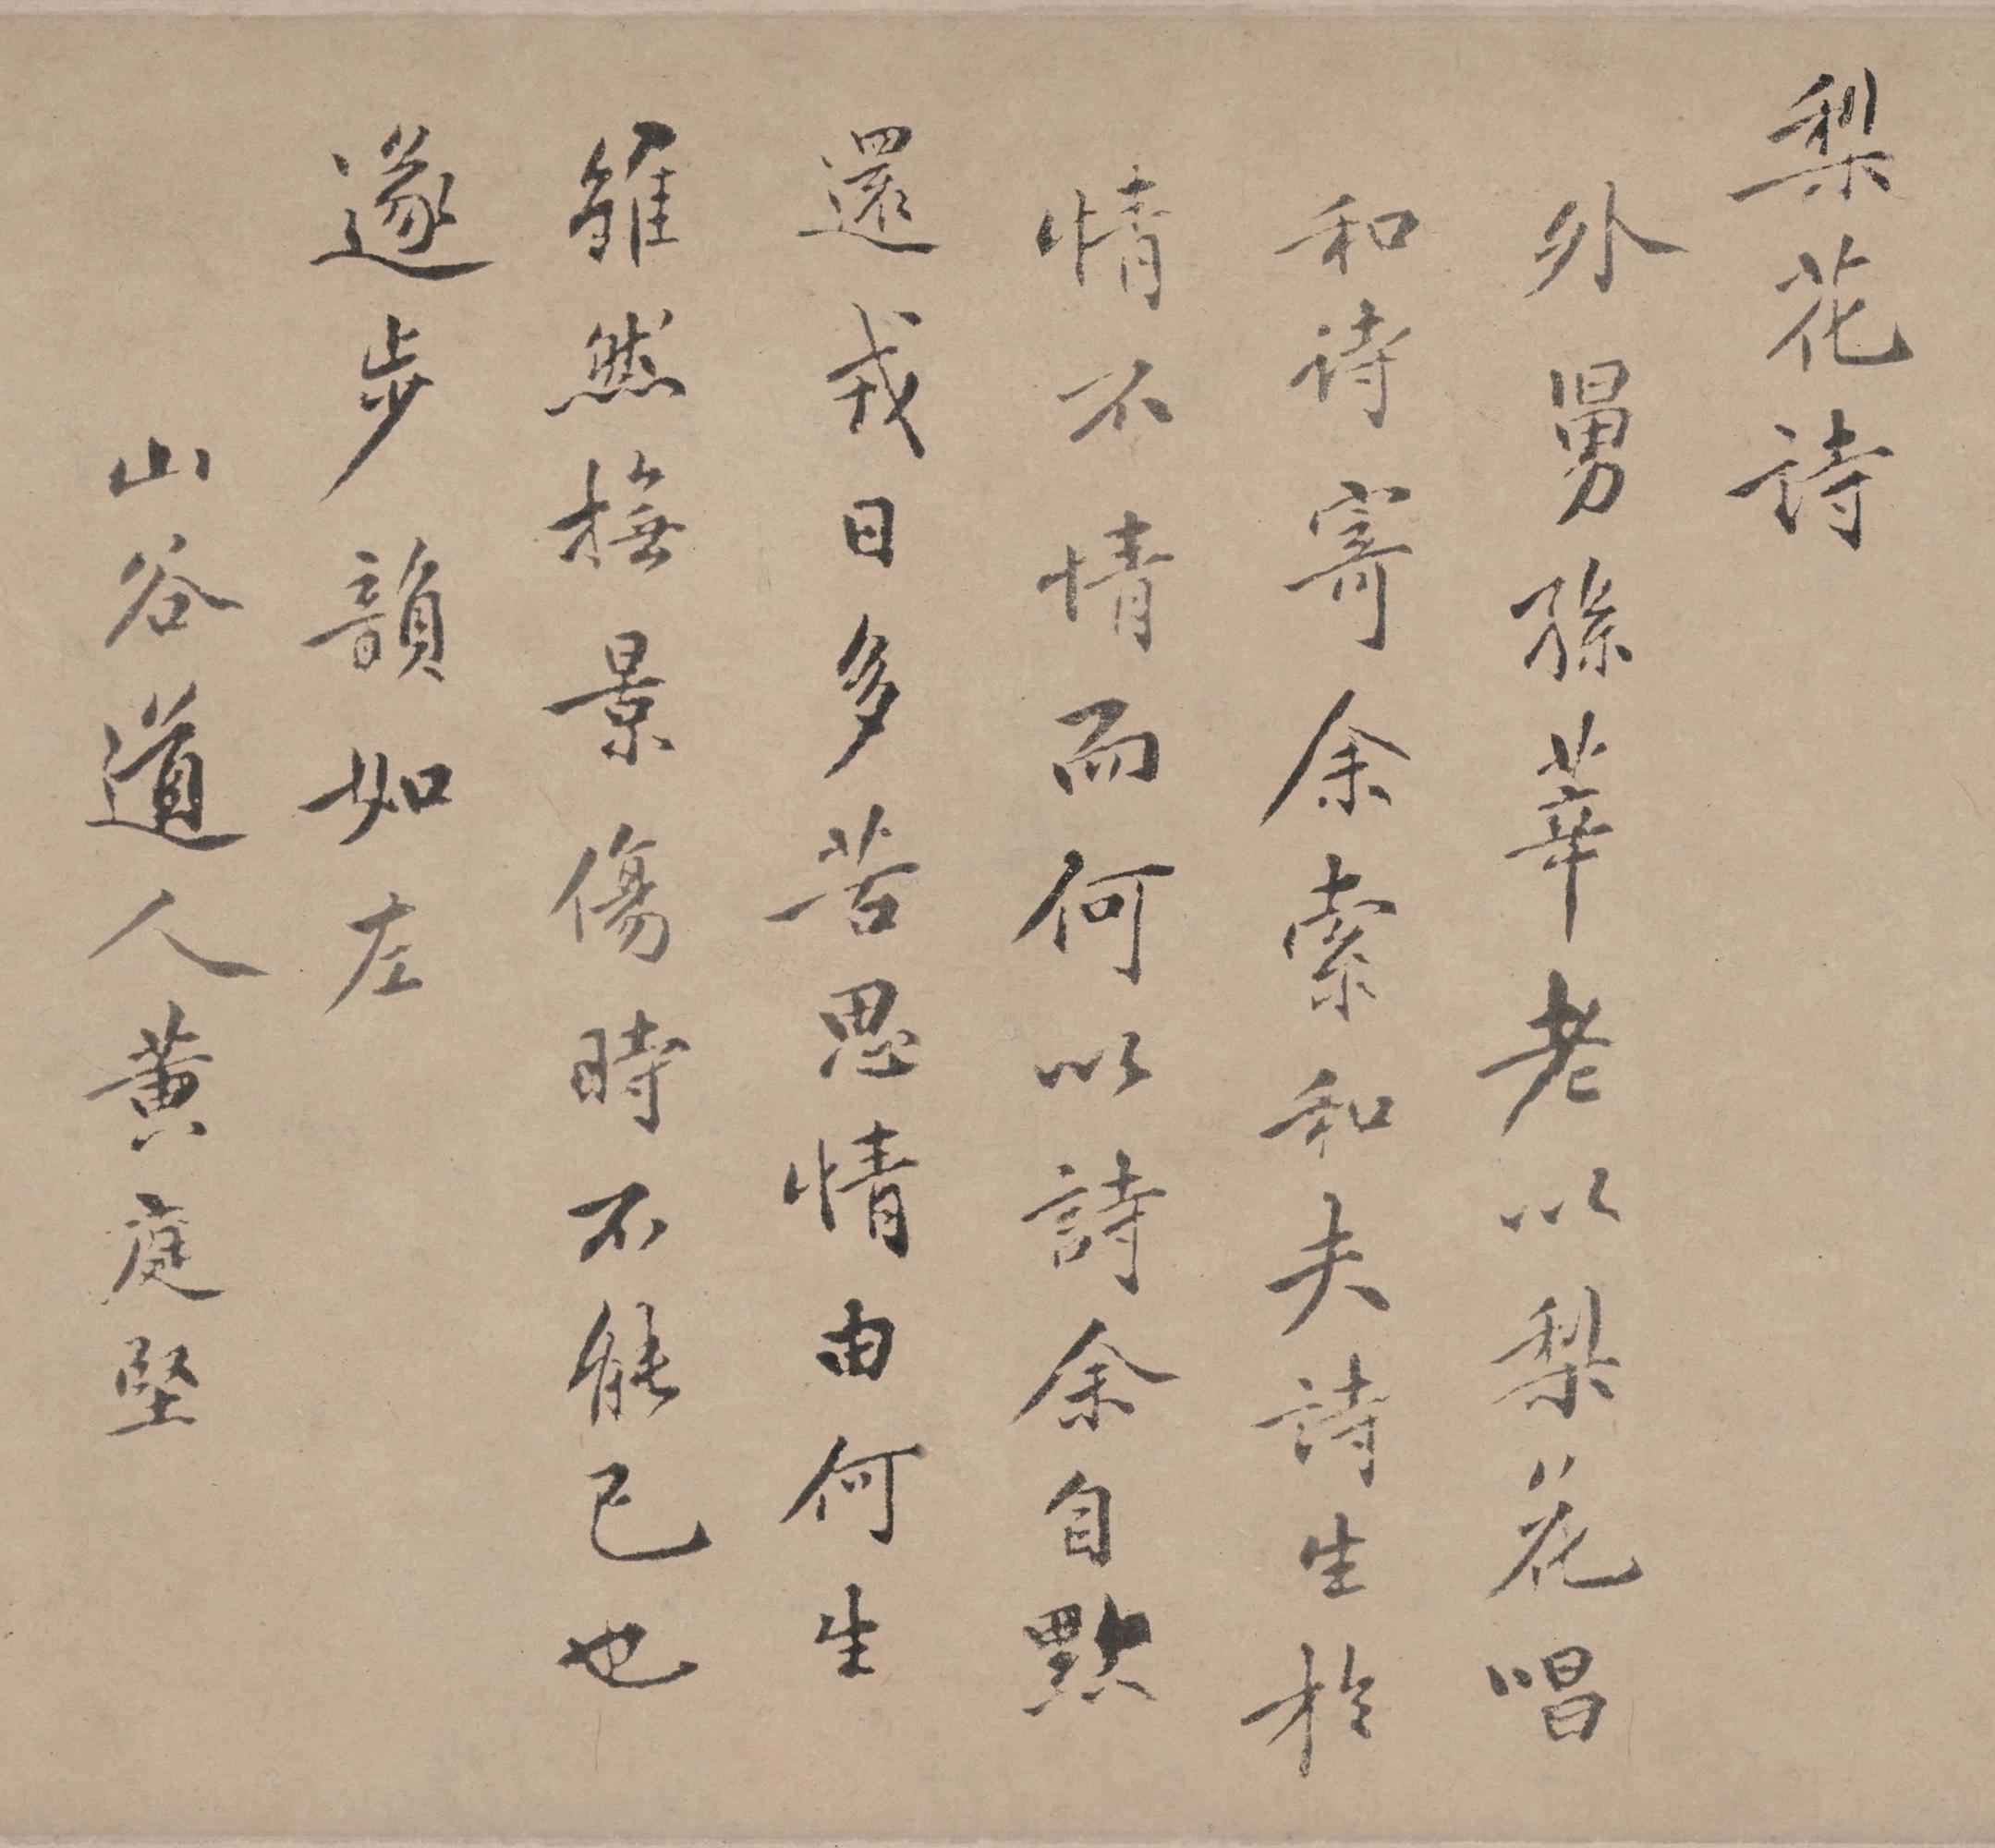 梨花詩
外舅孫莘老以梨花唱
和詩寄余索和夫詩生於
情不情而何以詩余自黔
還戎日多苦思情由何生
雖然撫景傷時不能已也
遂步韻如左
山谷道人黃庭堅